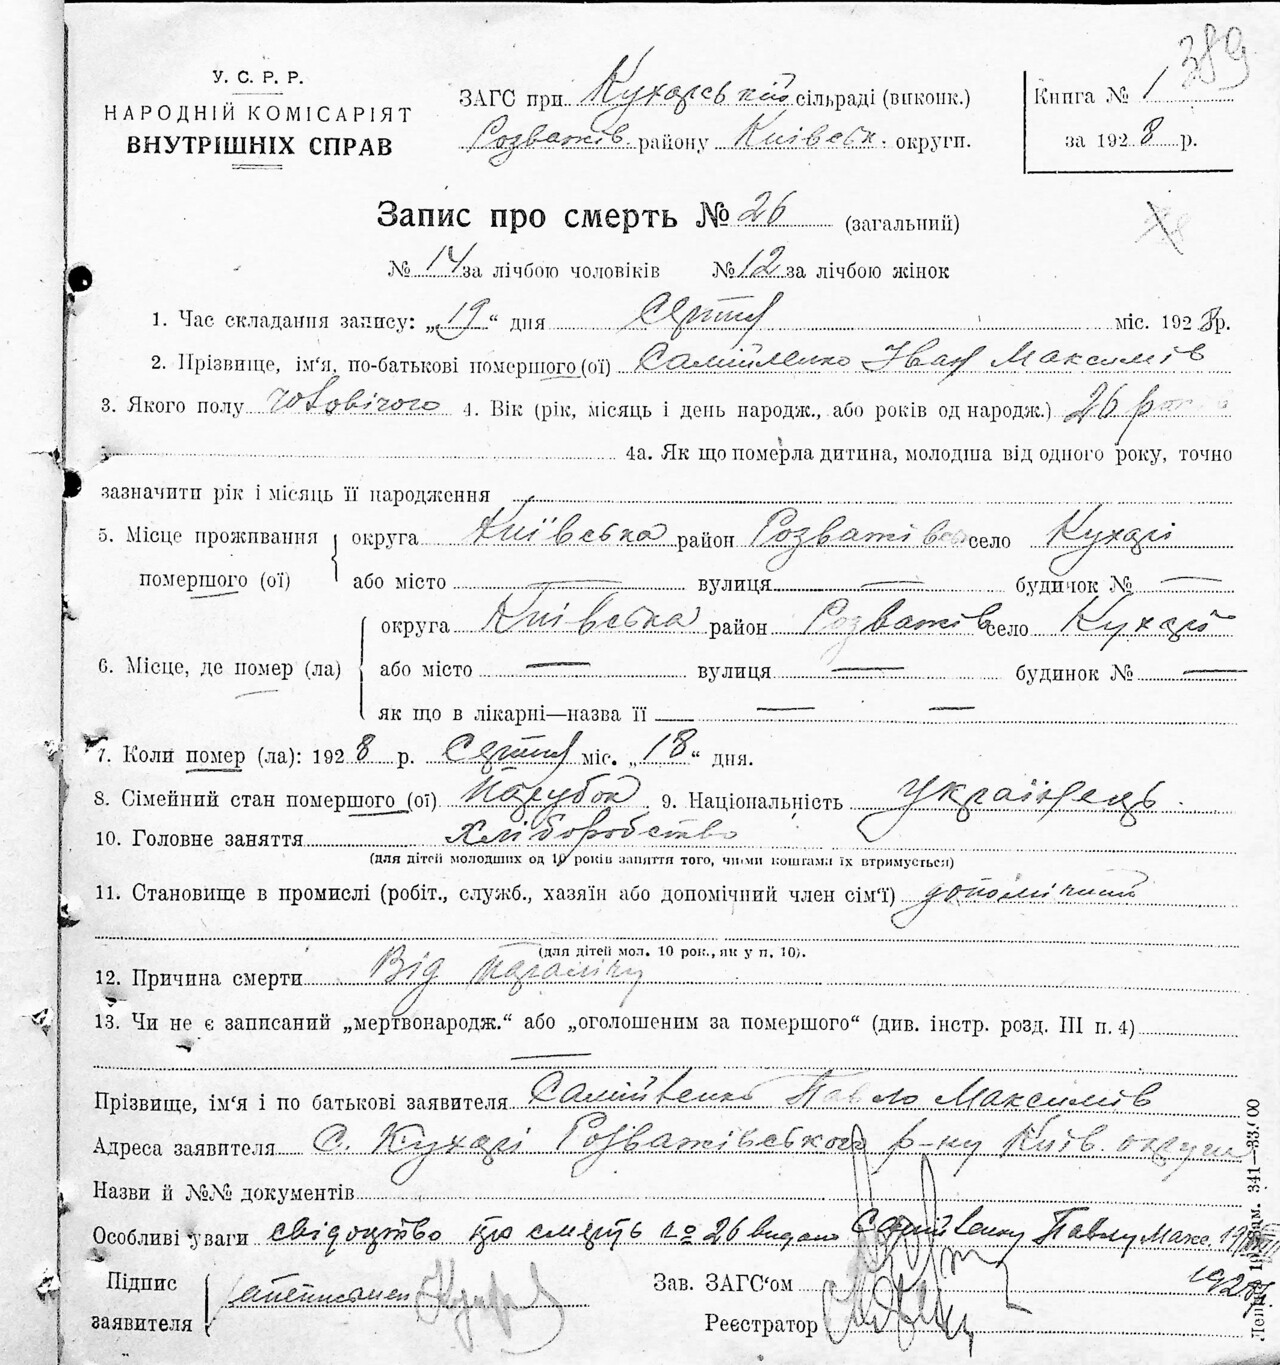 389
У. С. Р. Р.
НАРОДНІЙ КОМІСАРІЯТ
ВНУТРІШНІХ СПРАВ
ЗАГС при Кухарській сільраді (виконк.)
Розважів. району Київськ. округи.
Книга № 1
за 1928 р.
Запис про смерть № 26 (загальний)
№ 14 за лічбою чоловіків № 12 за лічбою жінок
1. Час складання запису: „19“ дня Серпня міс. 1928 р.
2. Прізвище, ім'я, по-батькові помершого (ої) Самійленко Іван Максимів
3. Якого полу чоловічого 4. Вік (рік, місяць і день народж., або років од народж.) 26 років
4а. Як що померла дитина, молодша від одного року, точно
зазначити рік і місяць її народження
5. Місце проживання помершого (ої)
округа Київська район Розважівськ село Кухарі
або місто — вулиця — будинок № —
6. Місце, де помер (ла)
округа Київська район Розважів село Кухарі
або місто — вулиця — будинок № —
як що в лікарні—назва її — —
7. Коли помер (ла): 1928 р. Серпня міс. „18“ дня.
8. Сімейний стан помершого (ої) Парубок 9. Національність Українець.
10. Головне заняття Хліборобство
(для дітей молодших од 10 років заняття того, чиїми коштами їх втримується)
11. Становище в промислі (робіт., служб., хазяїн або допомічний член сім'ї) допомічний
(для дітей мол. 10 рок., як у п. 10).
12. Причина смерти Від паралічу
13. Чи не є записаний „мертвонародж.“ або „оголошеним за помершого“ (див. інстр. розд. III п. 4)
—
Прізвище, ім'я і по батькові заявителя Самійленко Павло Максимів
Адреса заявителя С. Кухарі Розважівського р-ну Київ. округи
Назви й №№ документів
Особливі уваги свідоцтво про смерть № 26 видано Самійленку Павлу Макс. 19
1928 р.
Підпис заявителя
Зав. ЗАГС'ом
Реєстратор